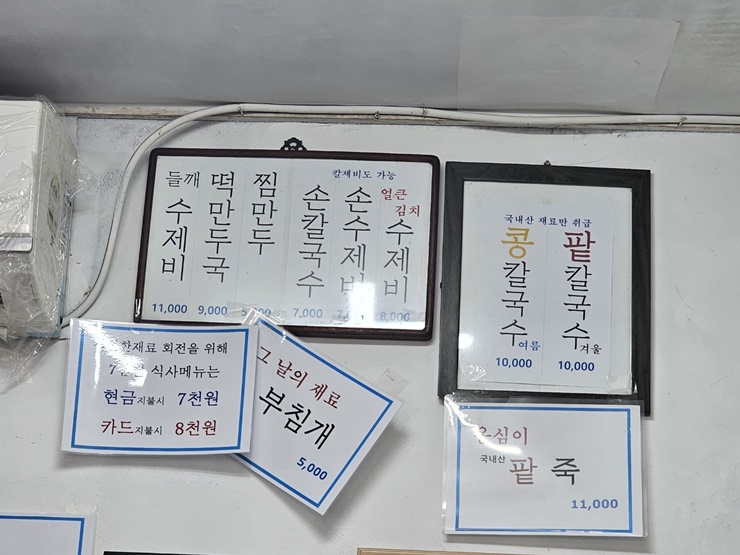 칼제비도 가능
들깨 수제비
11,000
떡만두국
9,000
찜만두
손칼국수
7,000
손수제비
얼큰 김치 수제비
8,000
국내산 재료만 취급
콩칼국수 여름
10,000
팥칼국수 겨울
10,000
재료 회전을 위해
식사메뉴는
현금지불시 7천원
카드지불시 8천원
그 날의 재료
부침개
5,000
옹심이
국내산 팥죽
11,000